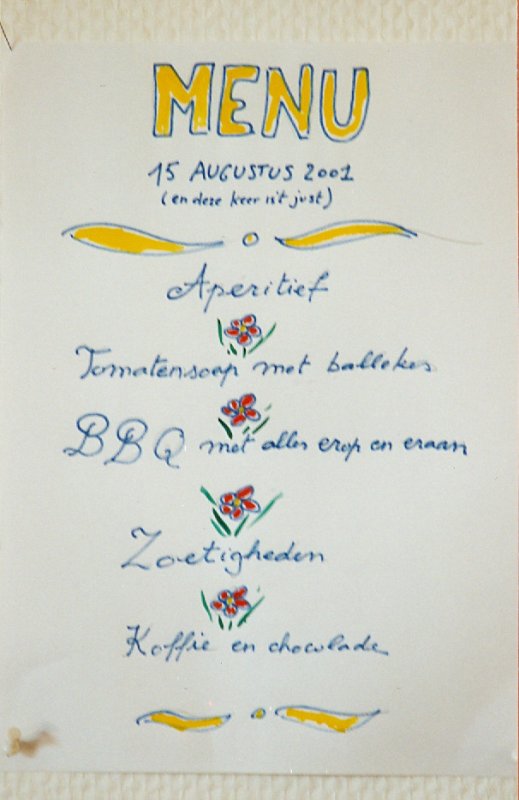 MENU
15 AUGUSTUS 2001
(en deze keer is't just)
Aperitief
Tomatensoep met ballekes
BBQ met alles erop en eraan
Zoetigheden
Koffie en chocolade